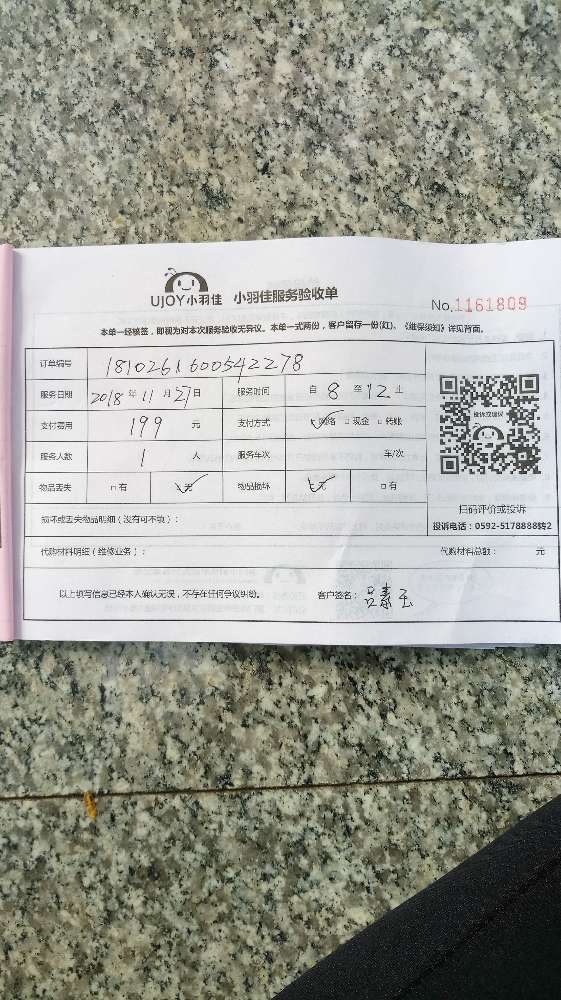 UJOY小羽佳 小羽佳服务验收单
No.1161809
本单一经核签，即视为对本次服务验收无异议。本单一式两份，客户留存一份(红)。《维保须知》详见背面。
订单编号 181026160054227​8
服务日期 2018 年 11 月 27 日 服务时间 自 8 至 12 止
支付费用 199 元 支付方式 网络 □ 现金 □ 转账
服务人数 1 人 服务车次 车/次
物品丢失 □ 有 无 物品损坏 无 □ 有
损坏或丢失物品明细（没有可不填）：
代购材料明细（维修业务）： 代购材料总额： 元
以上填写信息已经本人确认无误，不存在任何争议纠纷。 客户签名：吕素玉
投诉或建议
扫码评价或投诉
投诉电话：0592-5178888转2